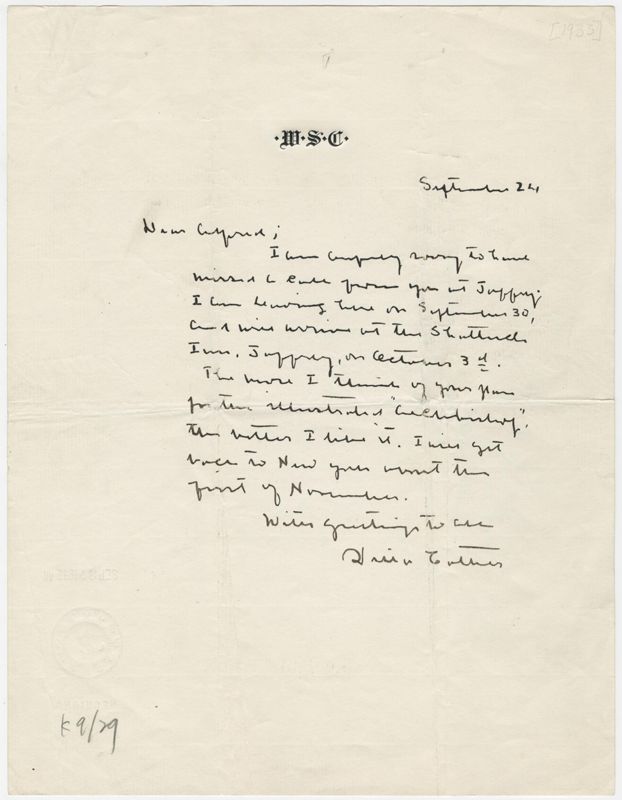 [1933]
·W·S·C·
September 24
Dear Alfred;
I am awfully sorry to have
missed a call from you at Jaffrey.
I am leaving here on September 30,
and will arrive at the Shattuck
Inn, Jaffrey, on October 3rd.
The more I think of your plan
for the illustrated "Archbishop",
the better I like it. I will get
back to New York about the
first of November.
With greetings to all
Willa Cather
K 9/29